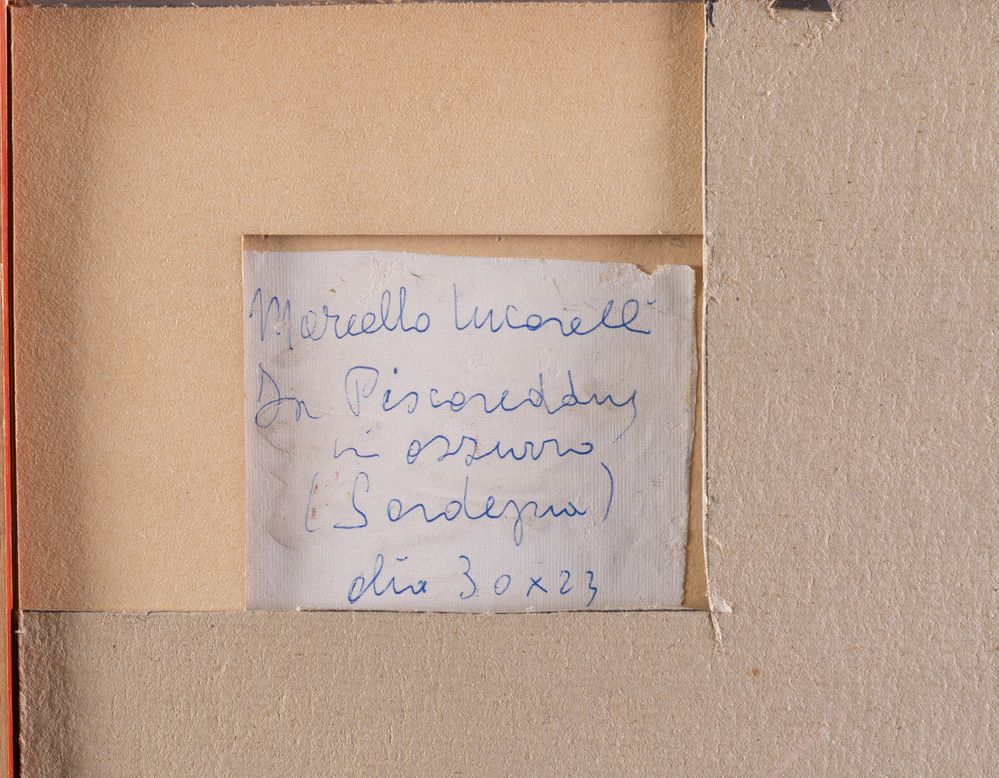 Marcello Lucarelli
Sa Piscareddu,
in azzurro
(Sardegna)
olio 30x23